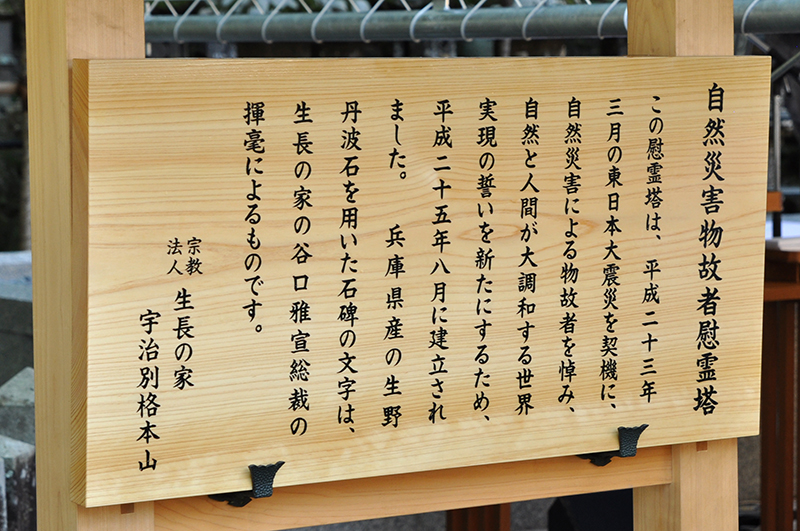 自然災害物故者慰霊塔
この慰霊塔は、平成二十三年
三月の東日本大震災を契機に、
自然災害による物故者を悼み、
自然と人間が大調和する世界
実現の誓いを新たにするため、
平成二十五年八月に建立され
ました。　兵庫県産の生野
丹波石を用いた石碑の文字は、
生長の家の谷口雅宣総裁の
揮毫によるものです。
宗教法人 生長の家
宇治別格本山